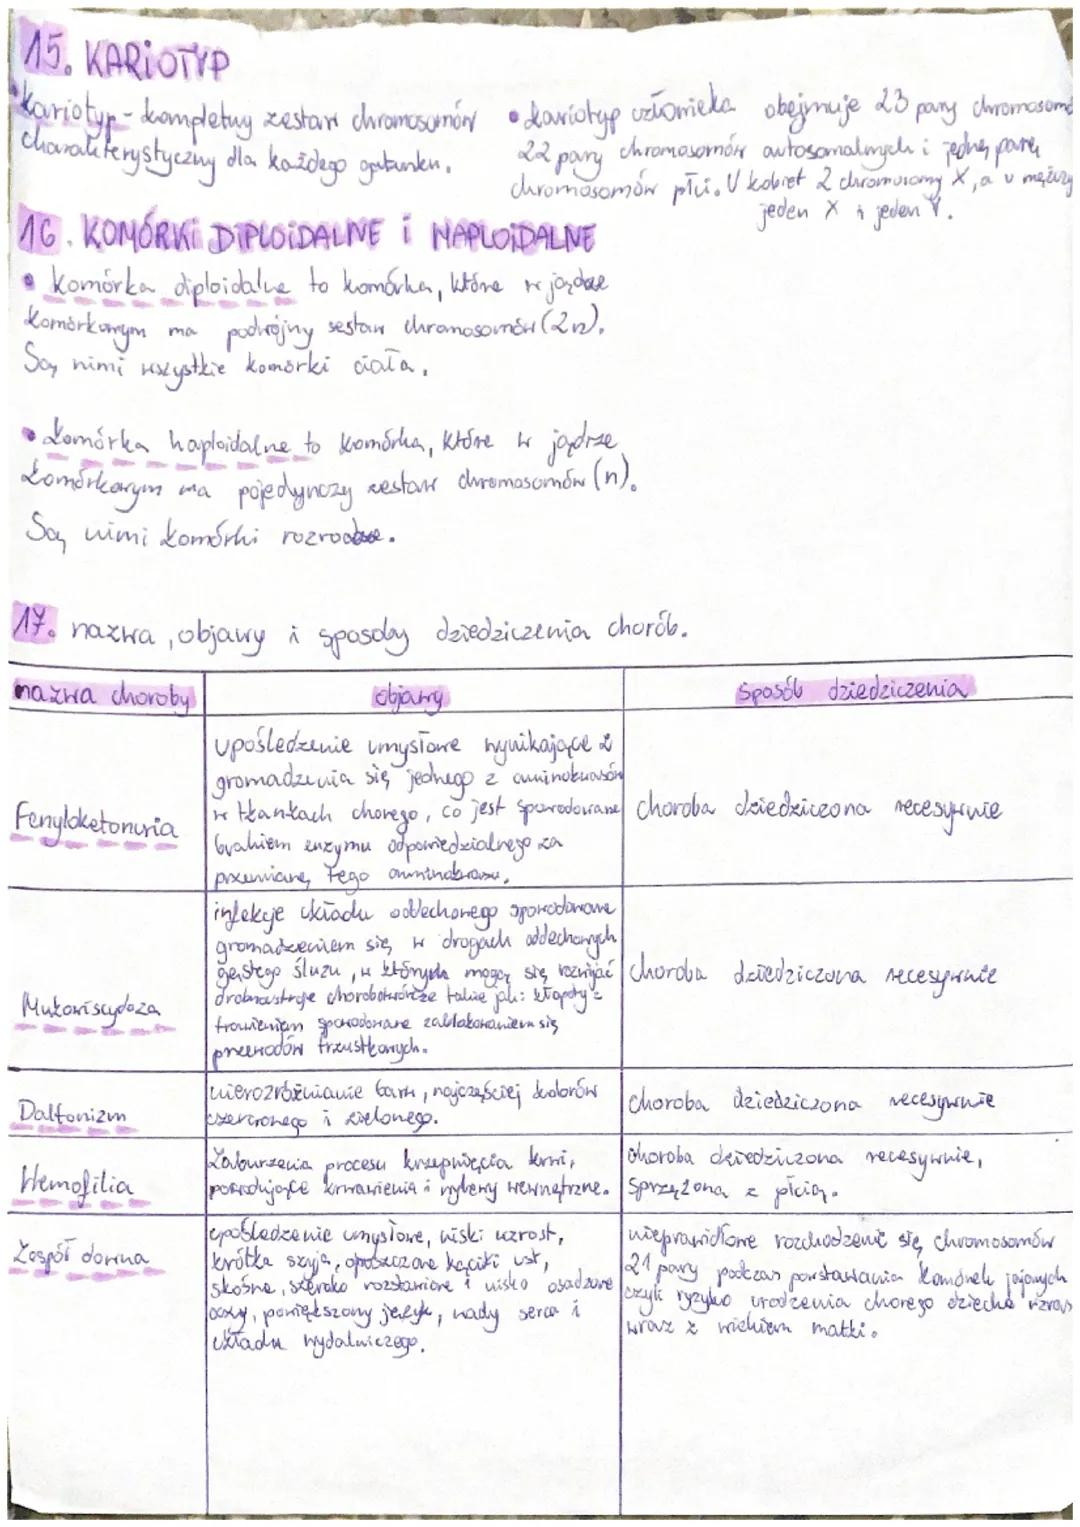 15. KARIOTYP
• Kariotyp - kompletny zestaw chromosomów
charakterystyczny dla każdego gatunku.
• kariotyp człowieka obejmuje 23 pary chromosomów
22 pary chromosomów autosomalnych i jedną parę
chromosomów płci. U kobiet 2 chromosomy X, a u
jeden X i jeden Y.
16. KOMÓRKI DIPLOIDALNE i HAPLOIDALNE
• komórka diploidalne to komórka, które w jądrze
komórkowym ma podwójny zestaw chromosomów (2n).
Są nimi wszystkie komórki ciała.
• komórka haploidalne to komórka, które w jądrze
komórkowym ma pojedynczy zestaw chromosomów (n).
Są nimi komórki
17. nazwa, objawy i sposoby dziedziczenia chorób.
nazwa choroby
objawy
sposób dziedziczenia
Fenyloketonuria
upośledzenie umysłowe wynikające z
gromadzenia się jednego z aminokwasów
w tkankach chorego, co jest spowodowane
brakiem enzymu odpowiedzialnego za
przemianę tego aminokwasu.
choroba dziedziczona recesywnie
Mukowiscydoza
infekcje układu oddechowego spowodowane
gromadzeniem się w drogach oddechowych
gęstego śluzu, w których mogą się rozwijać
drobnoustroje chorobotwórcze takie jak: kłopoty z
trawieniem spowodowane zablokowaniem się
przewodów trzustkowych.
choroba dziedziczona recesywnie
Daltonizm
nierozróżnianie barw, najczęściej kolorów
czerwonego i zielonego.
choroba dziedziczona recesywnie
Hemofilia
Zaburzenia procesu krzepnięcia krwi,
powodujące krwawienia i wylewy wewnętrzne.
choroba dziedziczona recesywnie,
sprzężona z płcią.
Zespół downa
upośledzenie umysłowe, niski wzrost,
krótka szyja, opuszczone kąciki ust,
skośne, szeroko rozstawione i nisko osadzone
oczy, powiększony język, wady serca i
układu wydalniczego.
nieprawidłowe rozchodzenie się chromosomów
21 pary podczas powstawania komórek jajowych
czyli ryzyko urodzenia chorego dziecka
wraz z wiekiem matki.